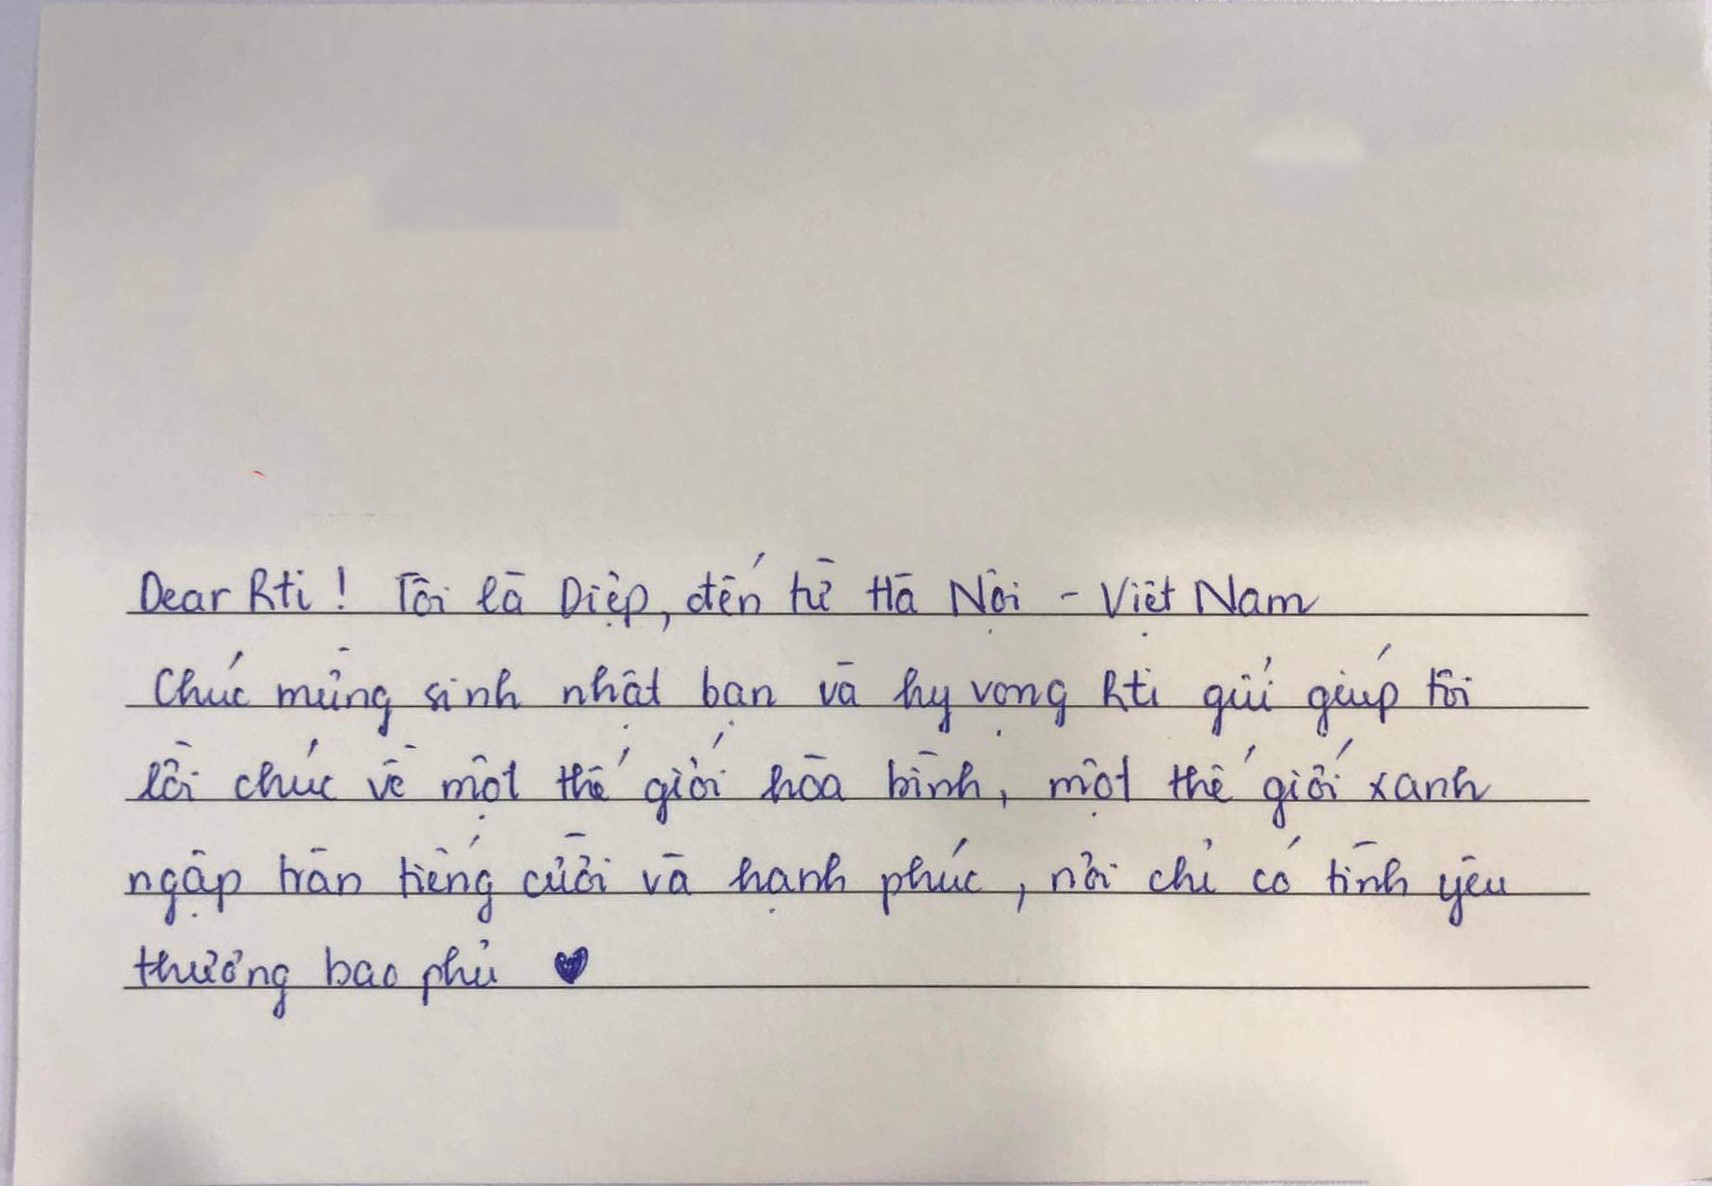 Dear Rti! Tôi là Diệp, đến từ Hà Nội - Việt Nam
Chúc mừng sinh nhật bạn và hy vọng Rti gửi giúp tôi
lời chúc về một thế giới hòa bình, một thế giới xanh
ngập tràn tiếng cười và hạnh phúc, nơi chỉ có tình yêu
thương bao phủ ♥